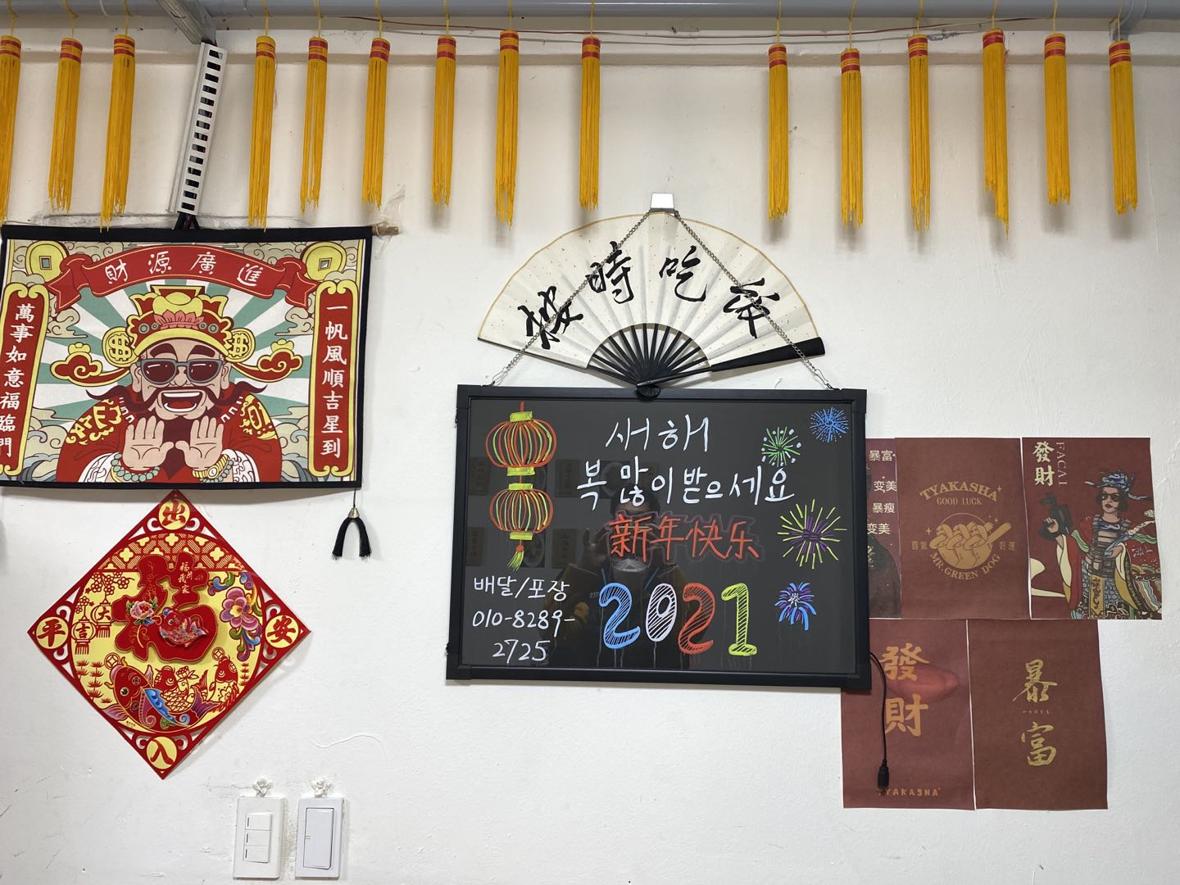 財源廣進
萬事如意福臨門
一帆風順吉星到
出
平
安
入
福
大
吉
按時吃飯
새해
복 많이 받으세요
新年快乐
2021
배달/포장
010-8289-
2725
暴富
变美
暴瘦
变美
TYAKASHA
GOOD LUCK
MR.GREEN DOG
發財
FACAI
發財
TYAKASHA
暴富